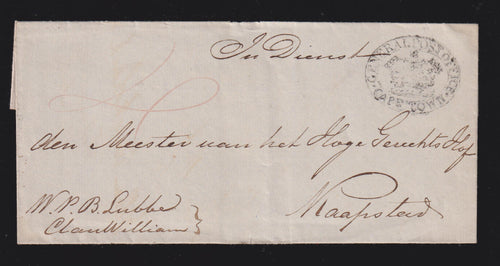 In Dienst
GENERAL POST OFFICE
CAPE TOWN
den Meester van het Hoge Gerechts Hof
Kaapstad
W. P. B. Lubbe
Clan William